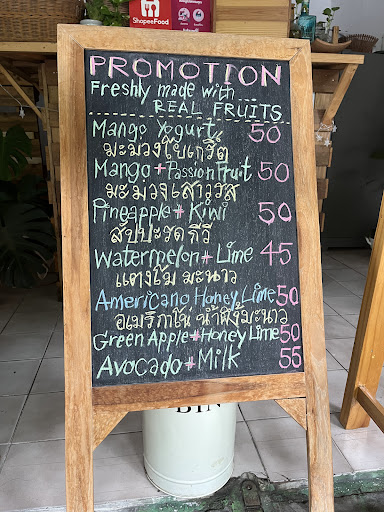 ShopeeFood
PROMOTION
Freshly made with
REAL FRUITS
Mango Yogurt 50
มะม่วงโยเกิร์ต
Mango + Passion Fruit 50
มะม่วงเสาวรส
Pineapple + Kiwi 50
สับปะรดกีวี
Watermelon + Lime 45
แตงโม มะนาว
Americano Honey Lime 50
อเมริกาโน่ น้ำผึ้งมะนาว
Green Apple + Honey Lime 50
Avocado + Milk 55
BIN